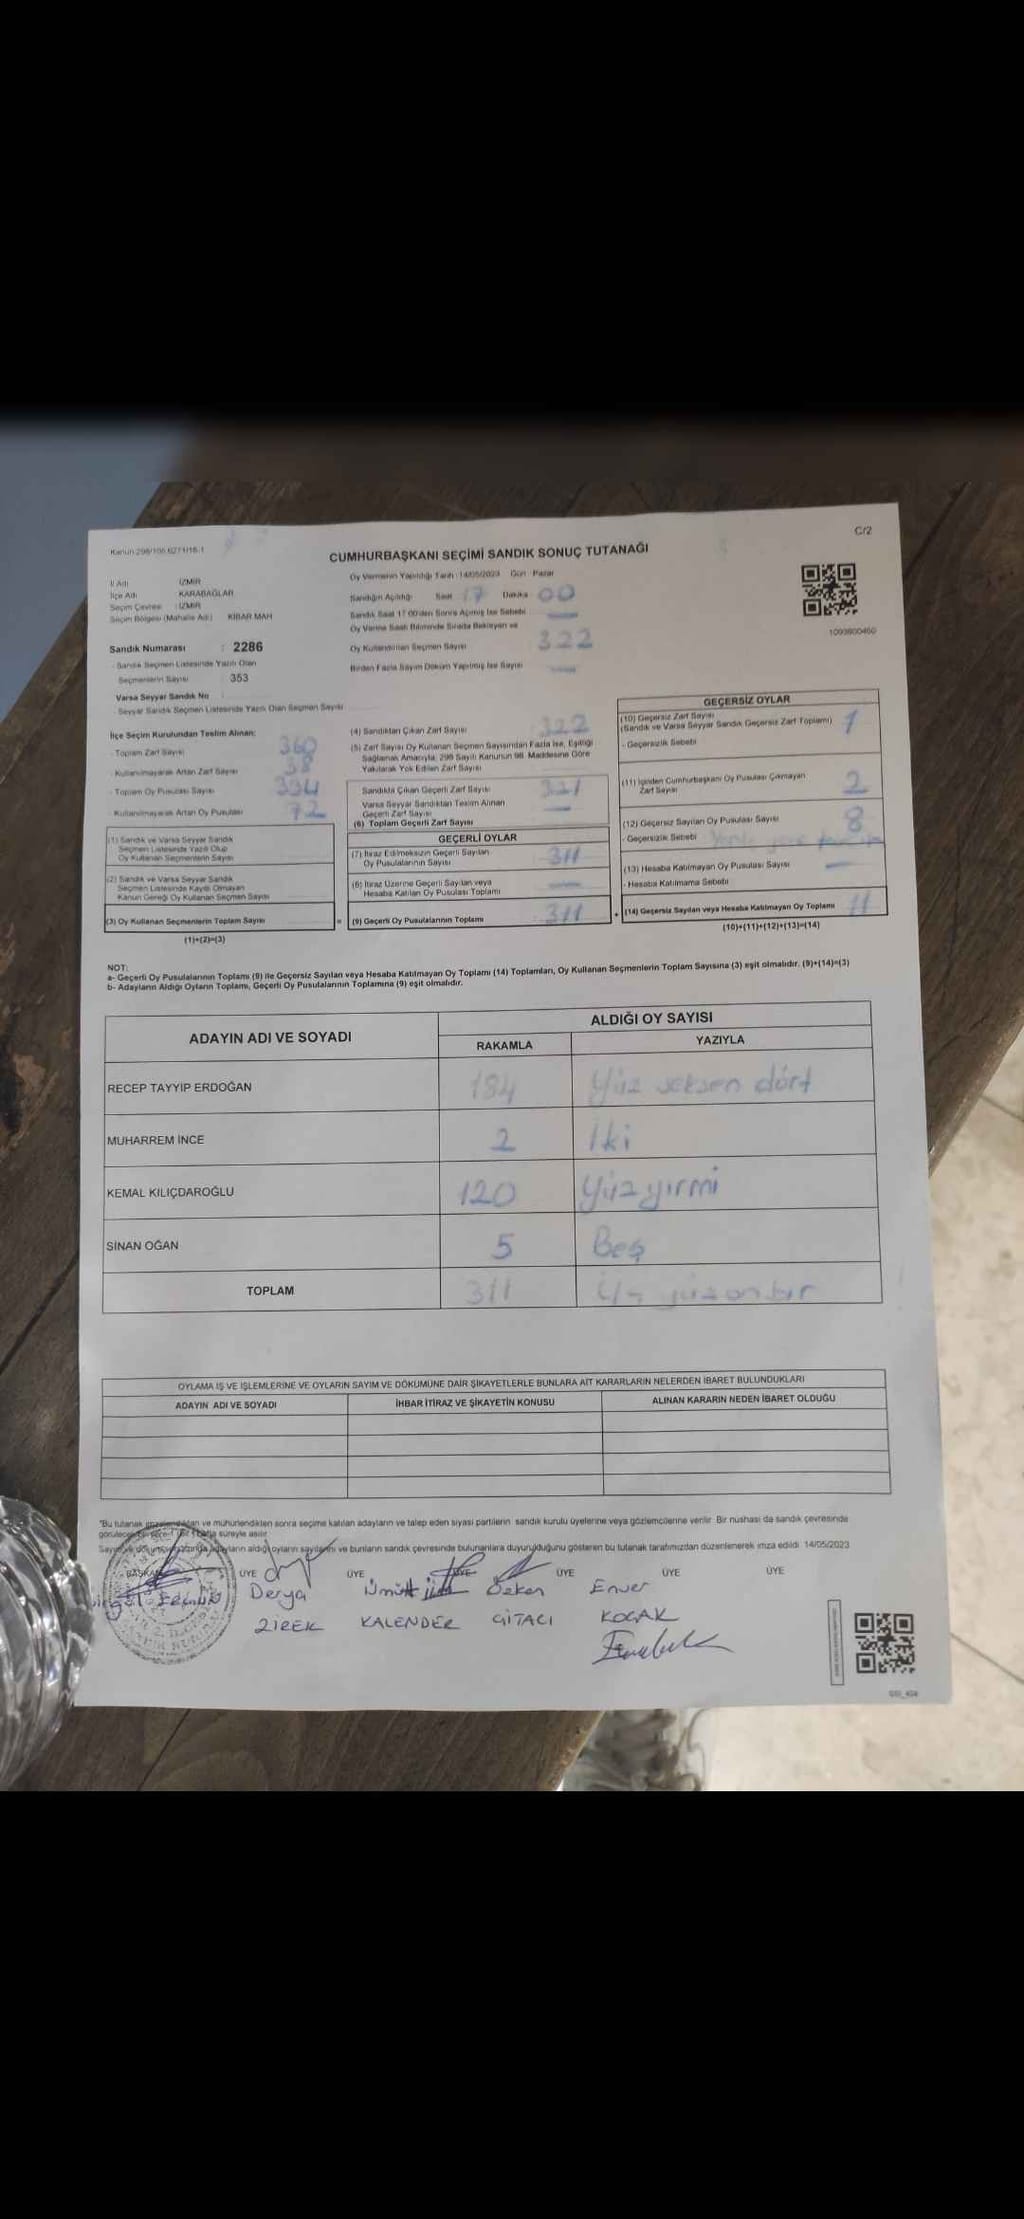 C/2
Kanun 298/105 6271/16-1
CUMHURBAŞKANI SEÇİMİ SANDIK SONUÇ TUTANAĞI
İl Adı İZMİR
İlçe Adı KARABAĞLAR
Seçim Çevresi : İZMİR
Seçim Bölgesi (Mahalle Adı) KİBAR MAH
Oy Vermenin Yapıldığı Tarih : 14/05/2023 Gün Pazar
Sandığın Açıldığı Saat 17 Dakika 00
Sandık Saat 17:00'den Sonra Açılmış İse Sebebi
Oy Verme Saati Bitiminde Sırada Bekleyen ve
Oy Kullandırılan Seçmen Sayısı 322
Birden Fazla Sayım Döküm Yapılmış İse Sayısı
1093800460
Sandık Numarası : 2286
- Sandık Seçmen Listesinde Yazılı Olan
Seçmenlerin Sayısı 353
Varsa Seyyar Sandık No
- Seyyar Sandık Seçmen Listesinde Yazılı Olan Seçmen Sayısı
İlçe Seçim Kurulundan Teslim Alınan:
- Toplam Zarf Sayısı 360
- Kullanılmayarak Artan Zarf Sayısı 38
- Toplam Oy Pusulası Sayısı
- Kullanılmayarak Artan Oy Pusulası 72
(1) Sandık ve Varsa Seyyar Sandık
Seçmen Listesinde Yazılı Olup
Oy Kullanan Seçmenlerin Sayısı
(2) Sandık ve Varsa Seyyar Sandık
Seçmen Listesinde Kayıtlı Olmayan
Kanun Gereği Oy Kullanan Seçmen Sayısı
(3) Oy Kullanan Seçmenlerin Toplam Sayısı
(1)+(2)=(3)
(4) Sandıktan Çıkan Zarf Sayısı 322
(5) Zarf Sayısı Oy Kullanan Seçmen Sayısından Fazla İse, Eşitliği
Sağlamak Amacıyla, 298 Sayılı Kanunun 98. Maddesine Göre
Yakılarak Yok Edilen Zarf Sayısı
Sandıkta Çıkan Geçerli Zarf Sayısı 321
Varsa Seyyar Sandıktan Teslim Alınan
Geçerli Zarf Sayısı
(6) Toplam Geçerli Zarf Sayısı
GEÇERLİ OYLAR
(7) İtiraz Edilmeksizin Geçerli Sayılan
Oy Pusulalarının Sayısı 311
(8) İtiraz Üzerine Geçerli Sayılan veya
Hesaba Katılan Oy Pusulası Toplamı
= (9) Geçerli Oy Pusulalarının Toplamı 311
GEÇERSİZ OYLAR
(10) Geçersiz Zarf Sayısı
(Sandık ve Varsa Seyyar Sandık Geçersiz Zarf Toplamı) 1
- Geçersizlik Sebebi
(11) İçinden Cumhurbaşkanı Oy Pusulası Çıkmayan
Zarf Sayısı 2
(12) Geçersiz Sayılan Oy Pusulası Sayısı 8
- Geçersizlik Sebebi
(13) Hesaba Katılmayan Oy Pusulası Sayısı
- Hesaba Katılmama Sebebi
+ (14) Geçersiz Sayılan veya Hesaba Katılmayan Oy Toplamı 11
(10)+(11)+(12)+(13)=(14)
NOT:
a- Geçerli Oy Pusulalarının Toplamı (9) ile Geçersiz Sayılan veya Hesaba Katılmayan Oy Toplamı (14) Toplamları, Oy Kullanan Seçmenlerin Toplam Sayısına (3) eşit olmalıdır. (9)+(14)=(3)
b- Adayların Aldığı Oyların Toplamı, Geçerli Oy Pusulalarının Toplamına (9) eşit olmalıdır.
ADAYIN ADI VE SOYADI ALDIĞI OY SAYISI
RAKAMLA YAZIYLA
RECEP TAYYİP ERDOĞAN 184 Yüz seksen dört
MUHARREM İNCE 2 İki
KEMAL KILIÇDAROĞLU 120 Yüz yirmi
SİNAN OĞAN 5 Beş
TOPLAM 311 Üç yüz on bir
OYLAMA İŞ VE İŞLEMLERİNE VE OYLARIN SAYIM VE DÖKÜMÜNE DAİR ŞİKAYETLERLE BUNLARA AİT KARARLARIN NELERDEN İBARET BULUNDUKLARI
ADAYIN ADI VE SOYADI İHBAR İTİRAZ VE ŞİKAYETİN KONUSU ALINAN KARARIN NEDEN İBARET OLDUĞU
"Bu tutanak imzalandıktan ve mühürlendikten sonra seçime katılan adayların ve talep eden siyasi partilerin sandık kurulu üyelerine veya gözlemcilerine verilir. Bir nüshası da sandık çevresinde
görülecek bir yere 1 hafta süreyle asılır.
Sayım ve döküm adayların aldığı oyların sayılarını ve bunların sandık çevresinde bulunanlara duyurulduğunu gösteren bu tutanak tarafımızdan düzenlenerek imza edildi. 14/05/2023
BAŞKAN ÜYE ÜYE ÜYE ÜYE ÜYE ÜYE
Derya Ümüt Özkan Enver
ZİREK KALENDER ÇİTACI KOÇAK